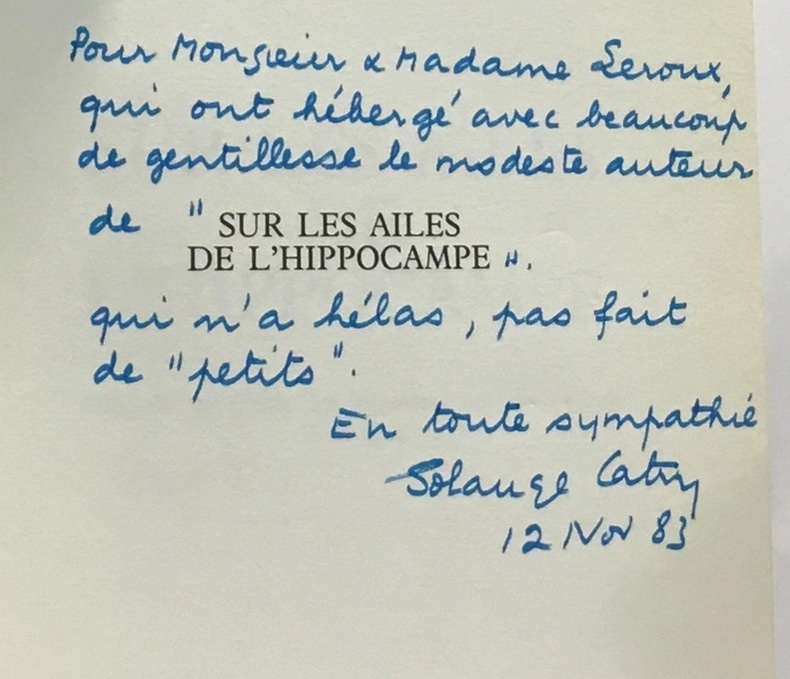 Pour Monsieur & Madame Leroux,
qui ont hébergé avec beaucoup
de gentillesse le modeste auteur
de " SUR LES AILES
DE L'HIPPOCAMPE ".
qui n'a hélas, pas fait
de "petits".
En toute sympathie
Solange Catry
12 Nov 83